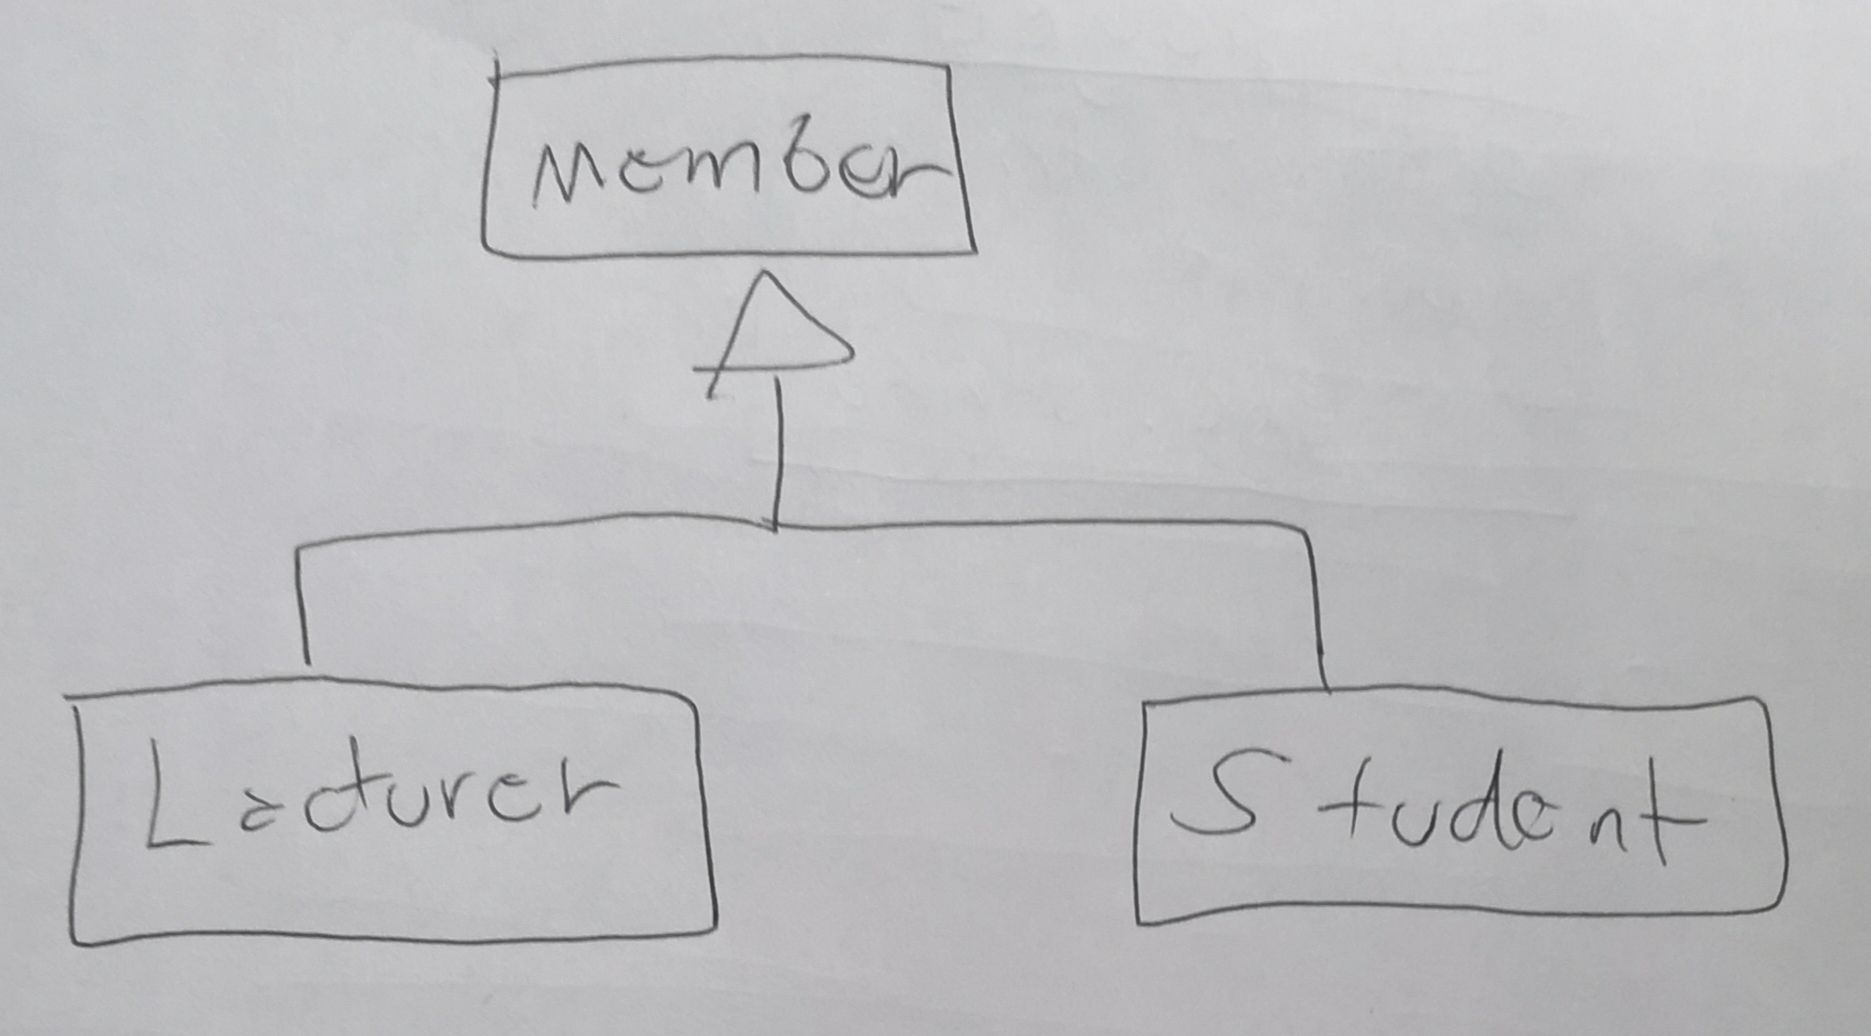 Member
Lecturer
Student